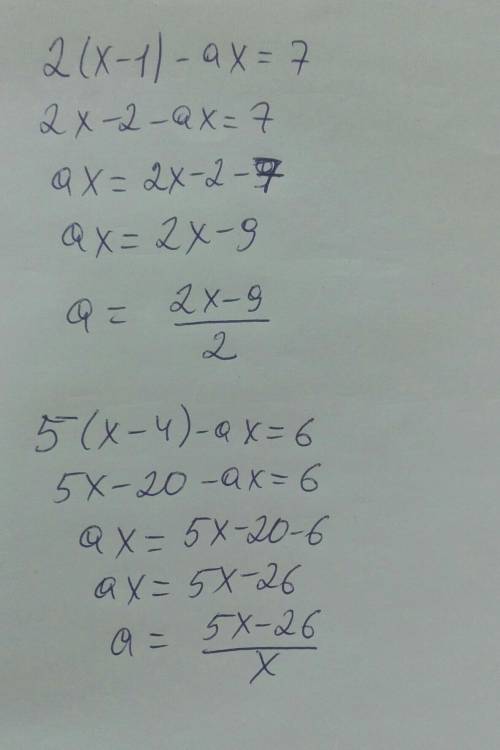 2(x-1)-ax=7
2x-2-ax=7
ax=2x-2-7
ax=2x-9
a= (2x-9)/2
5(x-4)-ax=6
5x-20-ax=6
ax=5x-20-6
ax=5x-26
a= (5x-26)/x